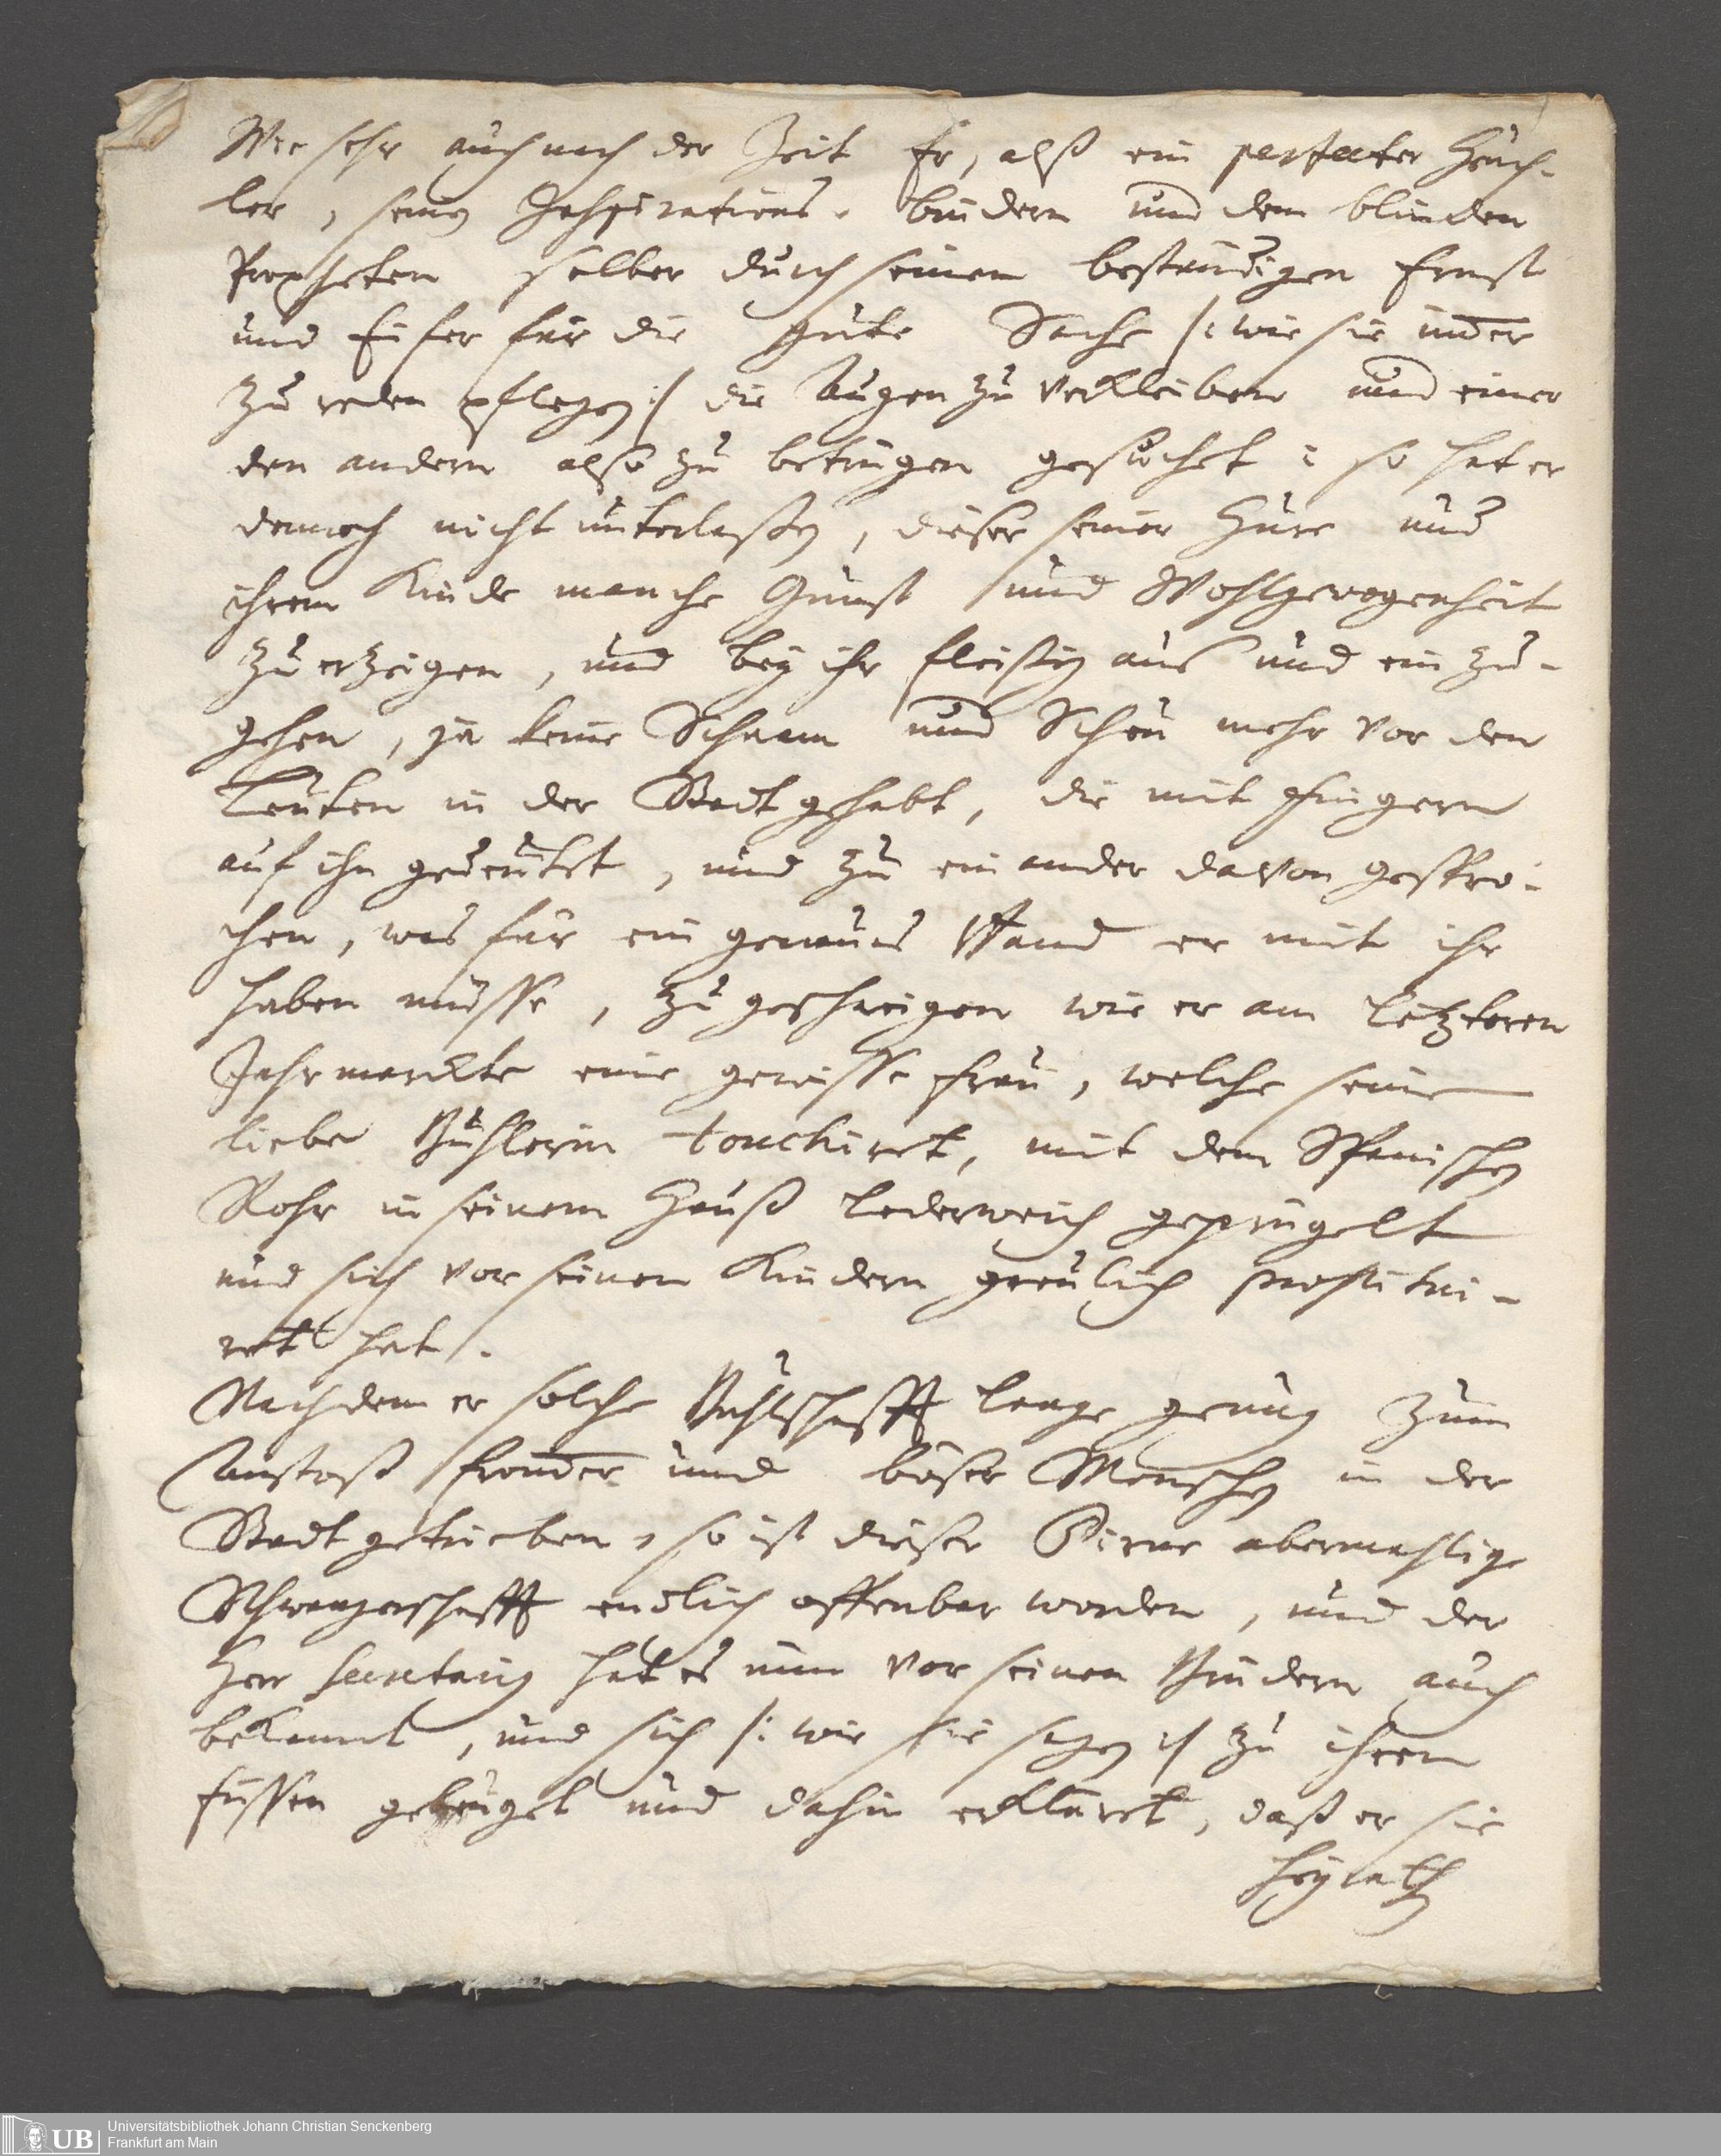 Wie sehr auch nach der Zeit Er, alß ein perfecter Heuch-
ler, seine Inspirations-brüdern und dem blinden
Propheten selber durch seinen beständigen Ernst
und Eifer für die gute Sache /: wie sie im̄er
zu reden pflegen :/ die Augen zu verkleiben und einer
den andern also zu betrügen gesuchet: so hat er
dennoch nicht unterlaßen, dieser seiner Hure und
ihrem Kinde manche Gunst und Wohlgewogenheit
zu erzeigen, und bey ihr fleißig aus und ein zu-
gehen, ja keine Schaam und Scheu mehr vor den
Leuten in der Stadt gehabt, die mit fingern
auf ihn gedeutet, und zu einander davon gespro-
chen, was für ein genaues Band er mit ihr
haben müsse, zu geschweigen wie er am letzteren
Jahrmarckte eine gewisse frau, welche seine
liebe Buhlerin touchiret, mit dem Spanischen
Rohr in seinem Hauß lederweich geprügelt
und sich vor seinen Kindern greulich prostitui-
ret hat.
Nachdem er solche Buhlschafft lange genug zum
Anstoß from̄er und böser Menschen in der
Stadt getrieben, so ist dieser Dirne abermahlige
Schwangerschafft endlich offenbar worden, und der
Herr hat es nun vor seinen Brüdern auch
bekannt, und sich /: wie sie sagen :/ zu ihren
füssen gebeuget und dahin erkläret, daß er sie
heyrath
Universitätsbibliothek Johann Christian Senckenberg
Frankfurt am Main
UB